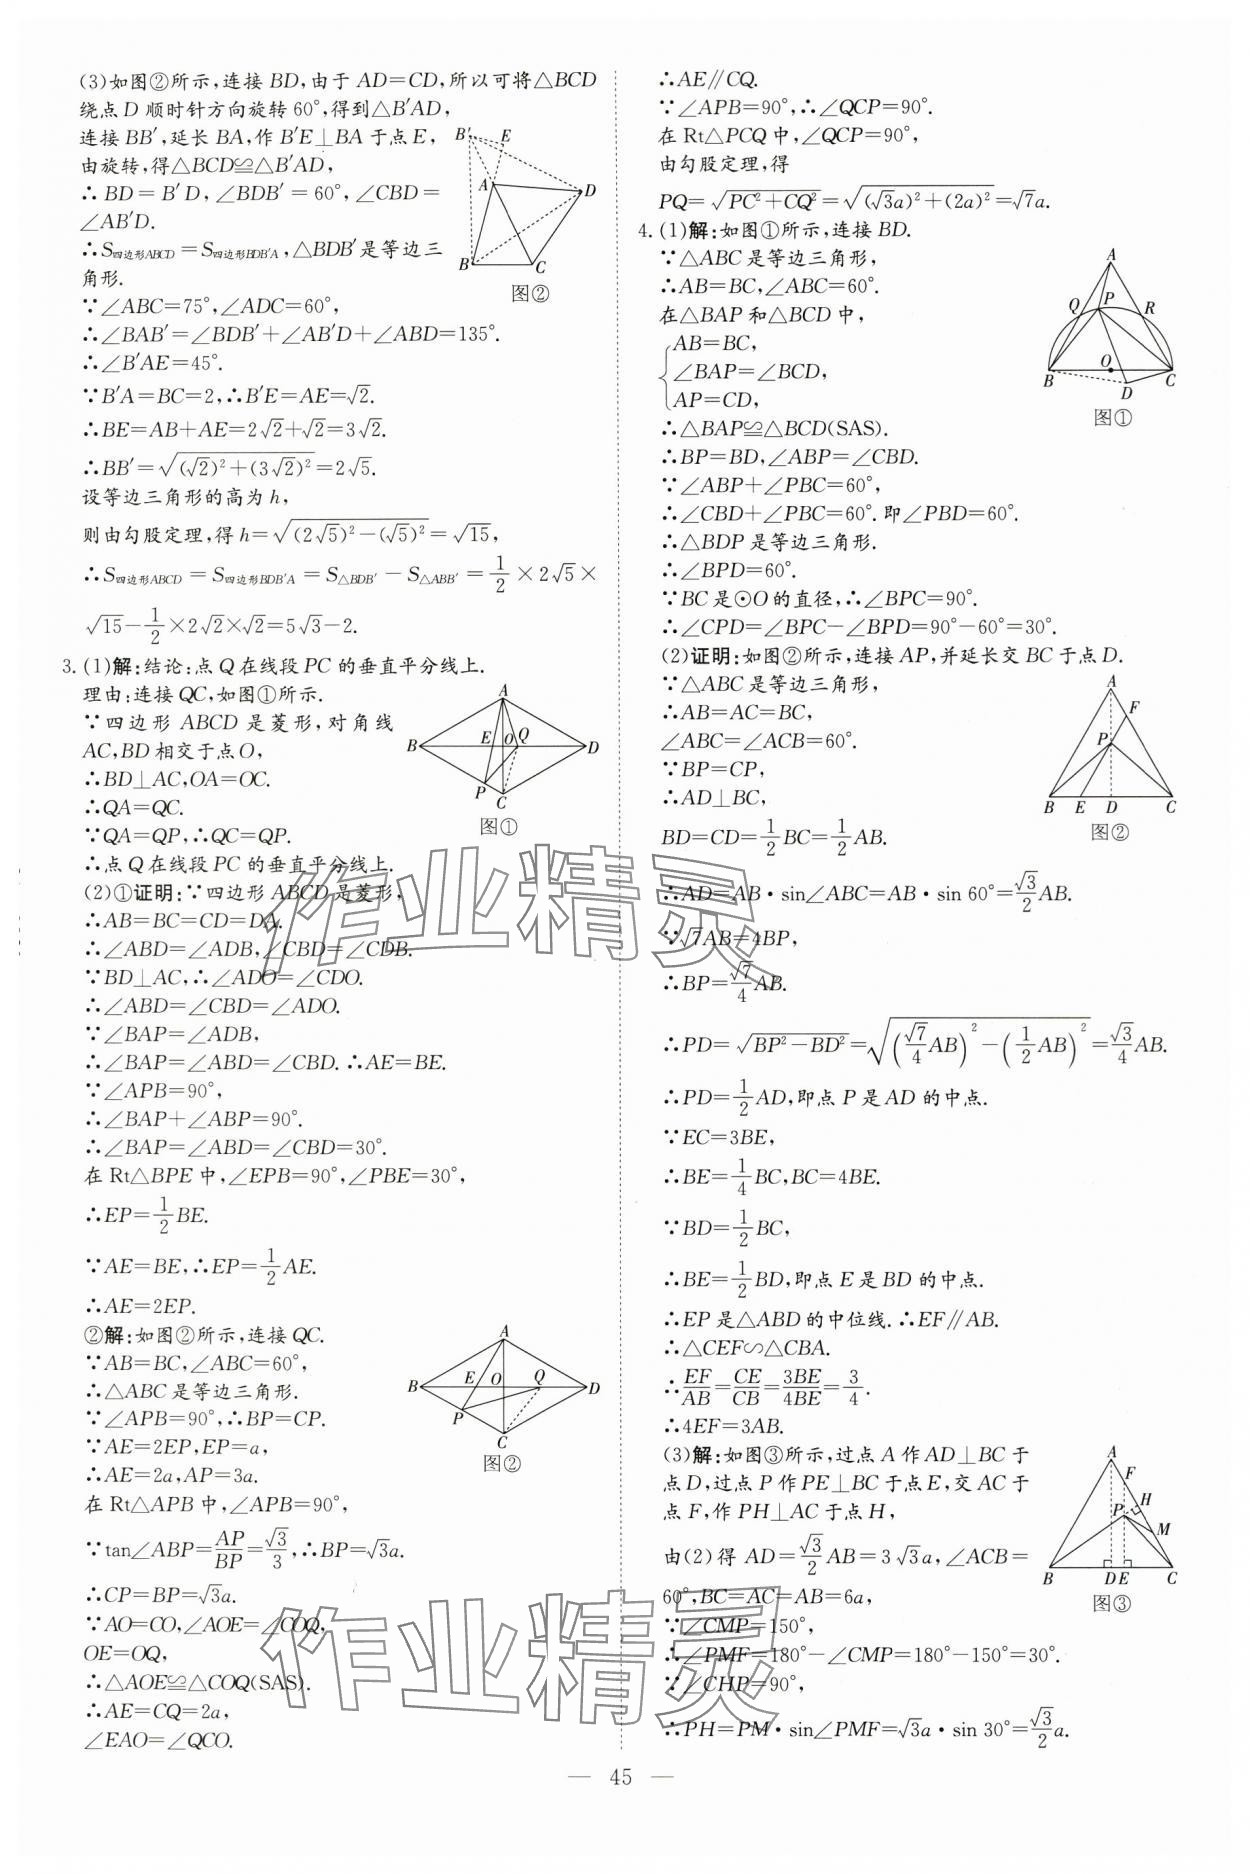 (3)如图②所示,连接 BD,由于 AD=CD,所以可将△BCD
绕点 D 顺时针方向旋转 60°,得到△B′AD,
连接 BB′,延长 BA,作 B′E⊥BA 于点 E,
由旋转,得△BCD≌△B′AD,
∴BD=B′D,∠BDB′=60°,∠CBD=
∠AB′D.
∴S四边形ABCD=S四边形BDB′A,△BDB′是等边三
角形.
∵∠ABC=75°,∠ADC=60°,
∴∠BAB′=∠BDB′+∠AB′D+∠ABD=135°.
∴∠B′AE=45°.
∵B′A=BC=2,∴B′E=AE=√2.
∴BE=AB+AE=2√2+√2=3√2.
∴BB′=√((√2)²+(3√2)²)=2√5.
设等边三角形的高为 h,
则由勾股定理,得 h=√((2√5)²-(√5)²)=√15,
∴S四边形ABCD=S四边形BDB′A=S△BDB′-S△ABB′=1/2×2√5×
√15-1/2×2√2×√2=5√3-2.
B′ E A D B C
图②
3. (1)解:结论:点 Q 在线段 PC 的垂直平分线上.
理由:连接 QC,如图①所示.
∵四边形 ABCD 是菱形,对角线
AC,BD 相交于点 O,
∴BD⊥AC,OA=OC.
∴QA=QC.
∵QA=QP,∴QC=QP.
∴点 Q 在线段 PC 的垂直平分线上.
A B E O Q D P C
图①
(2)①证明:∵四边形 ABCD 是菱形,
∴AB=BC=CD=DA.
∴∠ABD=∠ADB,∠CBD=∠CDB.
∵BD⊥AC,∴∠ADO=∠CDO.
∴∠ABD=∠CBD=∠ADO.
∵∠BAP=∠ADB,
∴∠BAP=∠ABD=∠CBD. ∴AE=BE.
∵∠APB=90°,
∴∠BAP+∠ABP=90°.
∴∠BAP=∠ABD=∠CBD=30°.
在 Rt△BPE 中,∠EPB=90°,∠PBE=30°,
∴EP=1/2 BE.
∵AE=BE,∴EP=1/2 AE.
∴AE=2EP.
②解:如图②所示,连接 QC.
∵AB=BC,∠ABC=60°,
∴△ABC 是等边三角形.
∵∠APB=90°,∴BP=CP.
∵AE=2EP,EP=a,
∴AE=2a,AP=3a.
在 Rt△APB 中,∠APB=90°,
∵tan∠ABP=AP/BP=√3/3,∴BP=√3a.
∴CP=BP=√3a.
∵AO=CO,∠AOE=∠COQ,
OE=OQ,
∴△AOE≌△COQ(SAS).
∴AE=CQ=2a,
∠EAO=∠QCO.
A B E O Q D P C
图②
∴AE∥CQ.
∵∠APB=90°,∴∠QCP=90°.
在 Rt△PCQ 中,∠QCP=90°,
由勾股定理,得
PQ=√(PC²+CQ²)=√((√3a)²+(2a)²)=√7a.
4. (1)解:如图①所示,连接 BD.
∵△ABC 是等边三角形,
∴AB=BC,∠ABC=60°.
在△BAP 和△BCD 中,
{AB=BC,
∠BAP=∠BCD,
AP=CD,
∴△BAP≌△BCD(SAS).
∴BP=BD,∠ABP=∠CBD.
∵∠ABP+∠PBC=60°,
∴∠CBD+∠PBC=60°. 即∠PBD=60°.
∴△BDP 是等边三角形.
∴∠BPD=60°.
∵BC 是⊙O 的直径,∴∠BPC=90°.
∴∠CPD=∠BPC-∠BPD=90°-60°=30°.
A Q P R B O C D
图①
(2)证明:如图②所示,连接 AP,并延长交 BC 于点 D.
∵△ABC 是等边三角形,
∴AB=AC=BC,
∠ABC=∠ACB=60°.
∵BP=CP,
∴AD⊥BC,
BD=CD=1/2 BC=1/2 AB.
∴AD=AB·sin∠ABC=AB·sin 60°=√3/2 AB.
∵√7AB=4BP,
∴BP=√7/4 AB.
∴PD=√(BP²-BD²)=√((√7/4 AB)²-(1/2 AB)²)=√3/4 AB.
∴PD=1/2 AD,即点 P 是 AD 的中点.
∵EC=3BE,
∴BE=1/4 BC,BC=4BE.
∵BD=1/2 BC,
∴BE=1/2 BD,即点 E 是 BD 的中点.
∴EP 是△ABD 的中位线. ∴EF∥AB.
∴△CEF∽△CBA.
∴EF/AB=CE/CB=3BE/4BE=3/4.
∴4EF=3AB.
A F P B E D C
图②
(3)解:如图③所示,过点 A 作 AD⊥BC 于
点 D,过点 P 作 PE⊥BC 于点 E,交 AC 于
点 F,作 PH⊥AC 于点 H,
由(2)得 AD=√3/2 AB=3√3a,∠ACB=
60°,BC=AC=AB=6a,
∵∠CMP=150°,
∴∠PMF=180°-∠CMP=180°-150°=30°.
∵∠CHP=90°,
∴PH=PM·sin∠PMF=√3a·sin 30°=√3/2 a.
A F H P M B D E C
图③
作业精灵
作业精灵
— 45 —